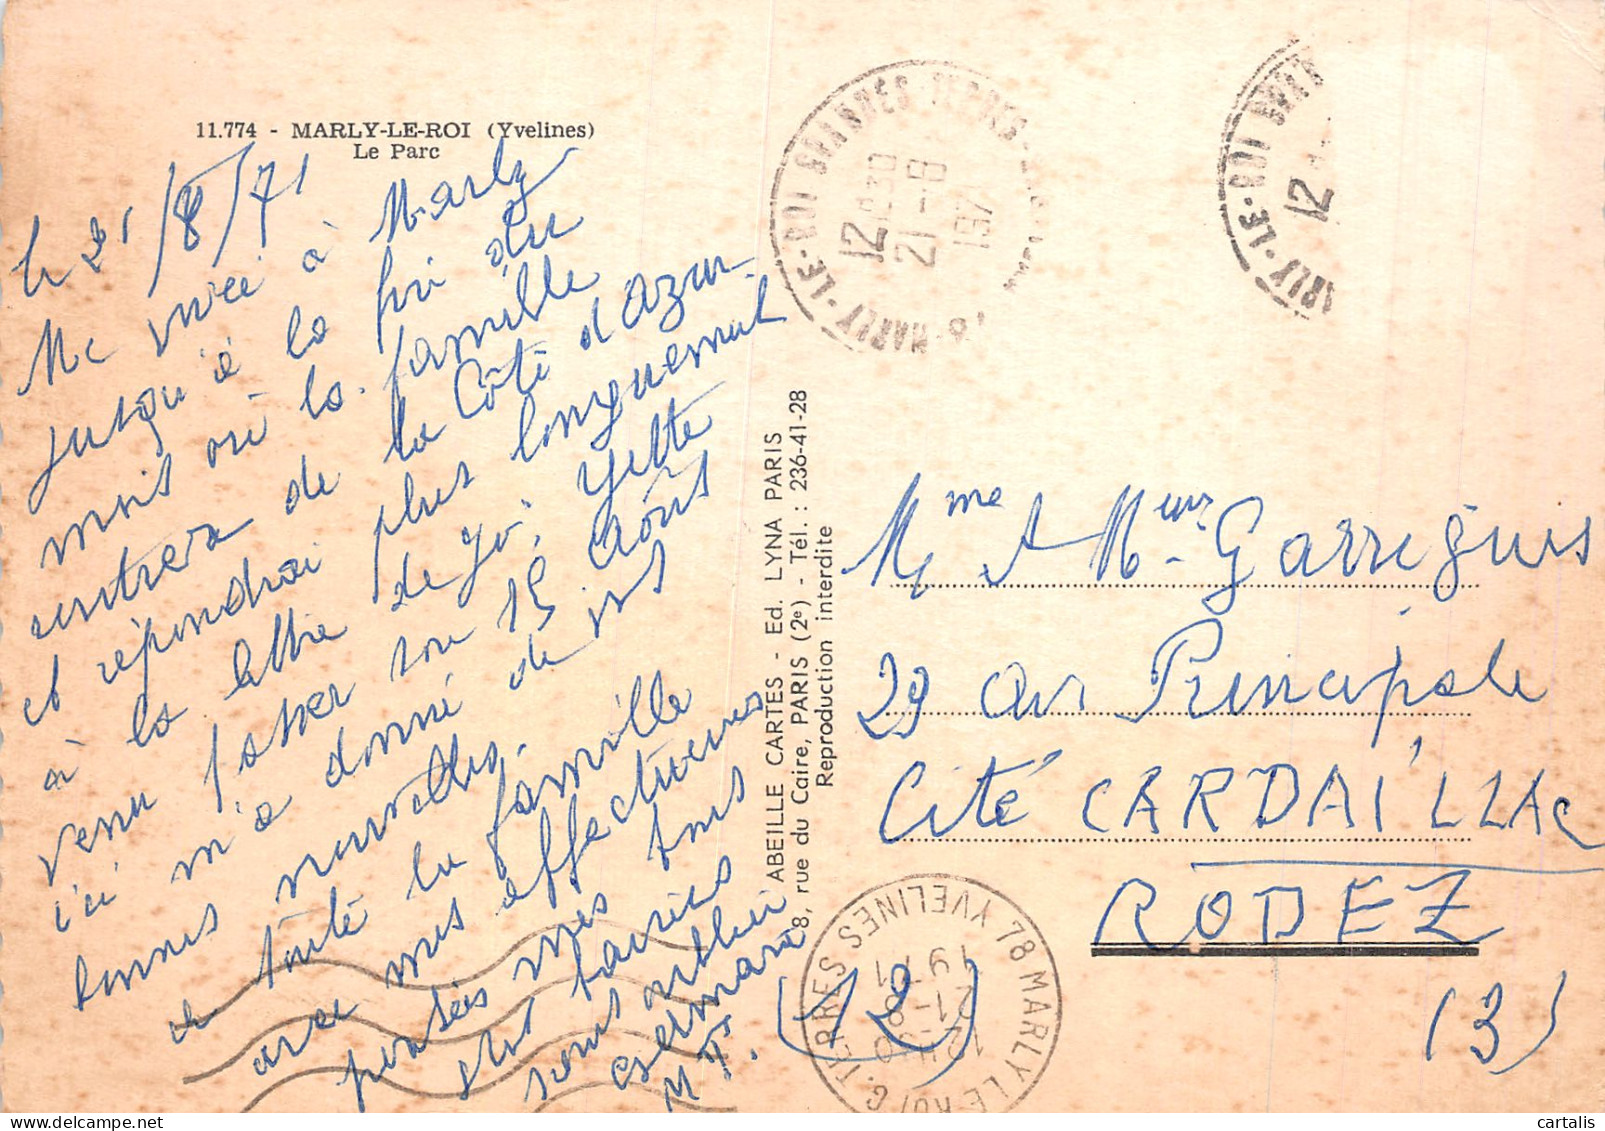 11.774 - MARLY-LE-ROI (Yvelines)
Le Parc
le 21/8/71
Me voici à Marly
jusqu'à la fin du
mois où la famille
rentrera de la Côte d'Azur
et répondrai plus longuement
à la lettre de Yvette
venu passer son 15 Août
ici m'a donné de vos
bonnes nouvelles.
de toute la famille
avec mes affectueuses
pensées mes tous
bons baisers
sans oublier
Germain
M T.
ABEILLE CARTES - Ed. LYNA PARIS
8, rue du Caire, PARIS (2e) - Tél. : 236-41-28
Reproduction interdite
Mme & Meur Garriguis
29 Av Principale
Cité CARDAILLAC
RODEZ
(12)
(3)
MARLY-LE-ROI GRANDES TERRES
12H30
21-8
1971
MARLY-LE-ROI
12
78 MARLY LE ROI G. TERRES YVELINES
12H30
21-8
1971
cartalis